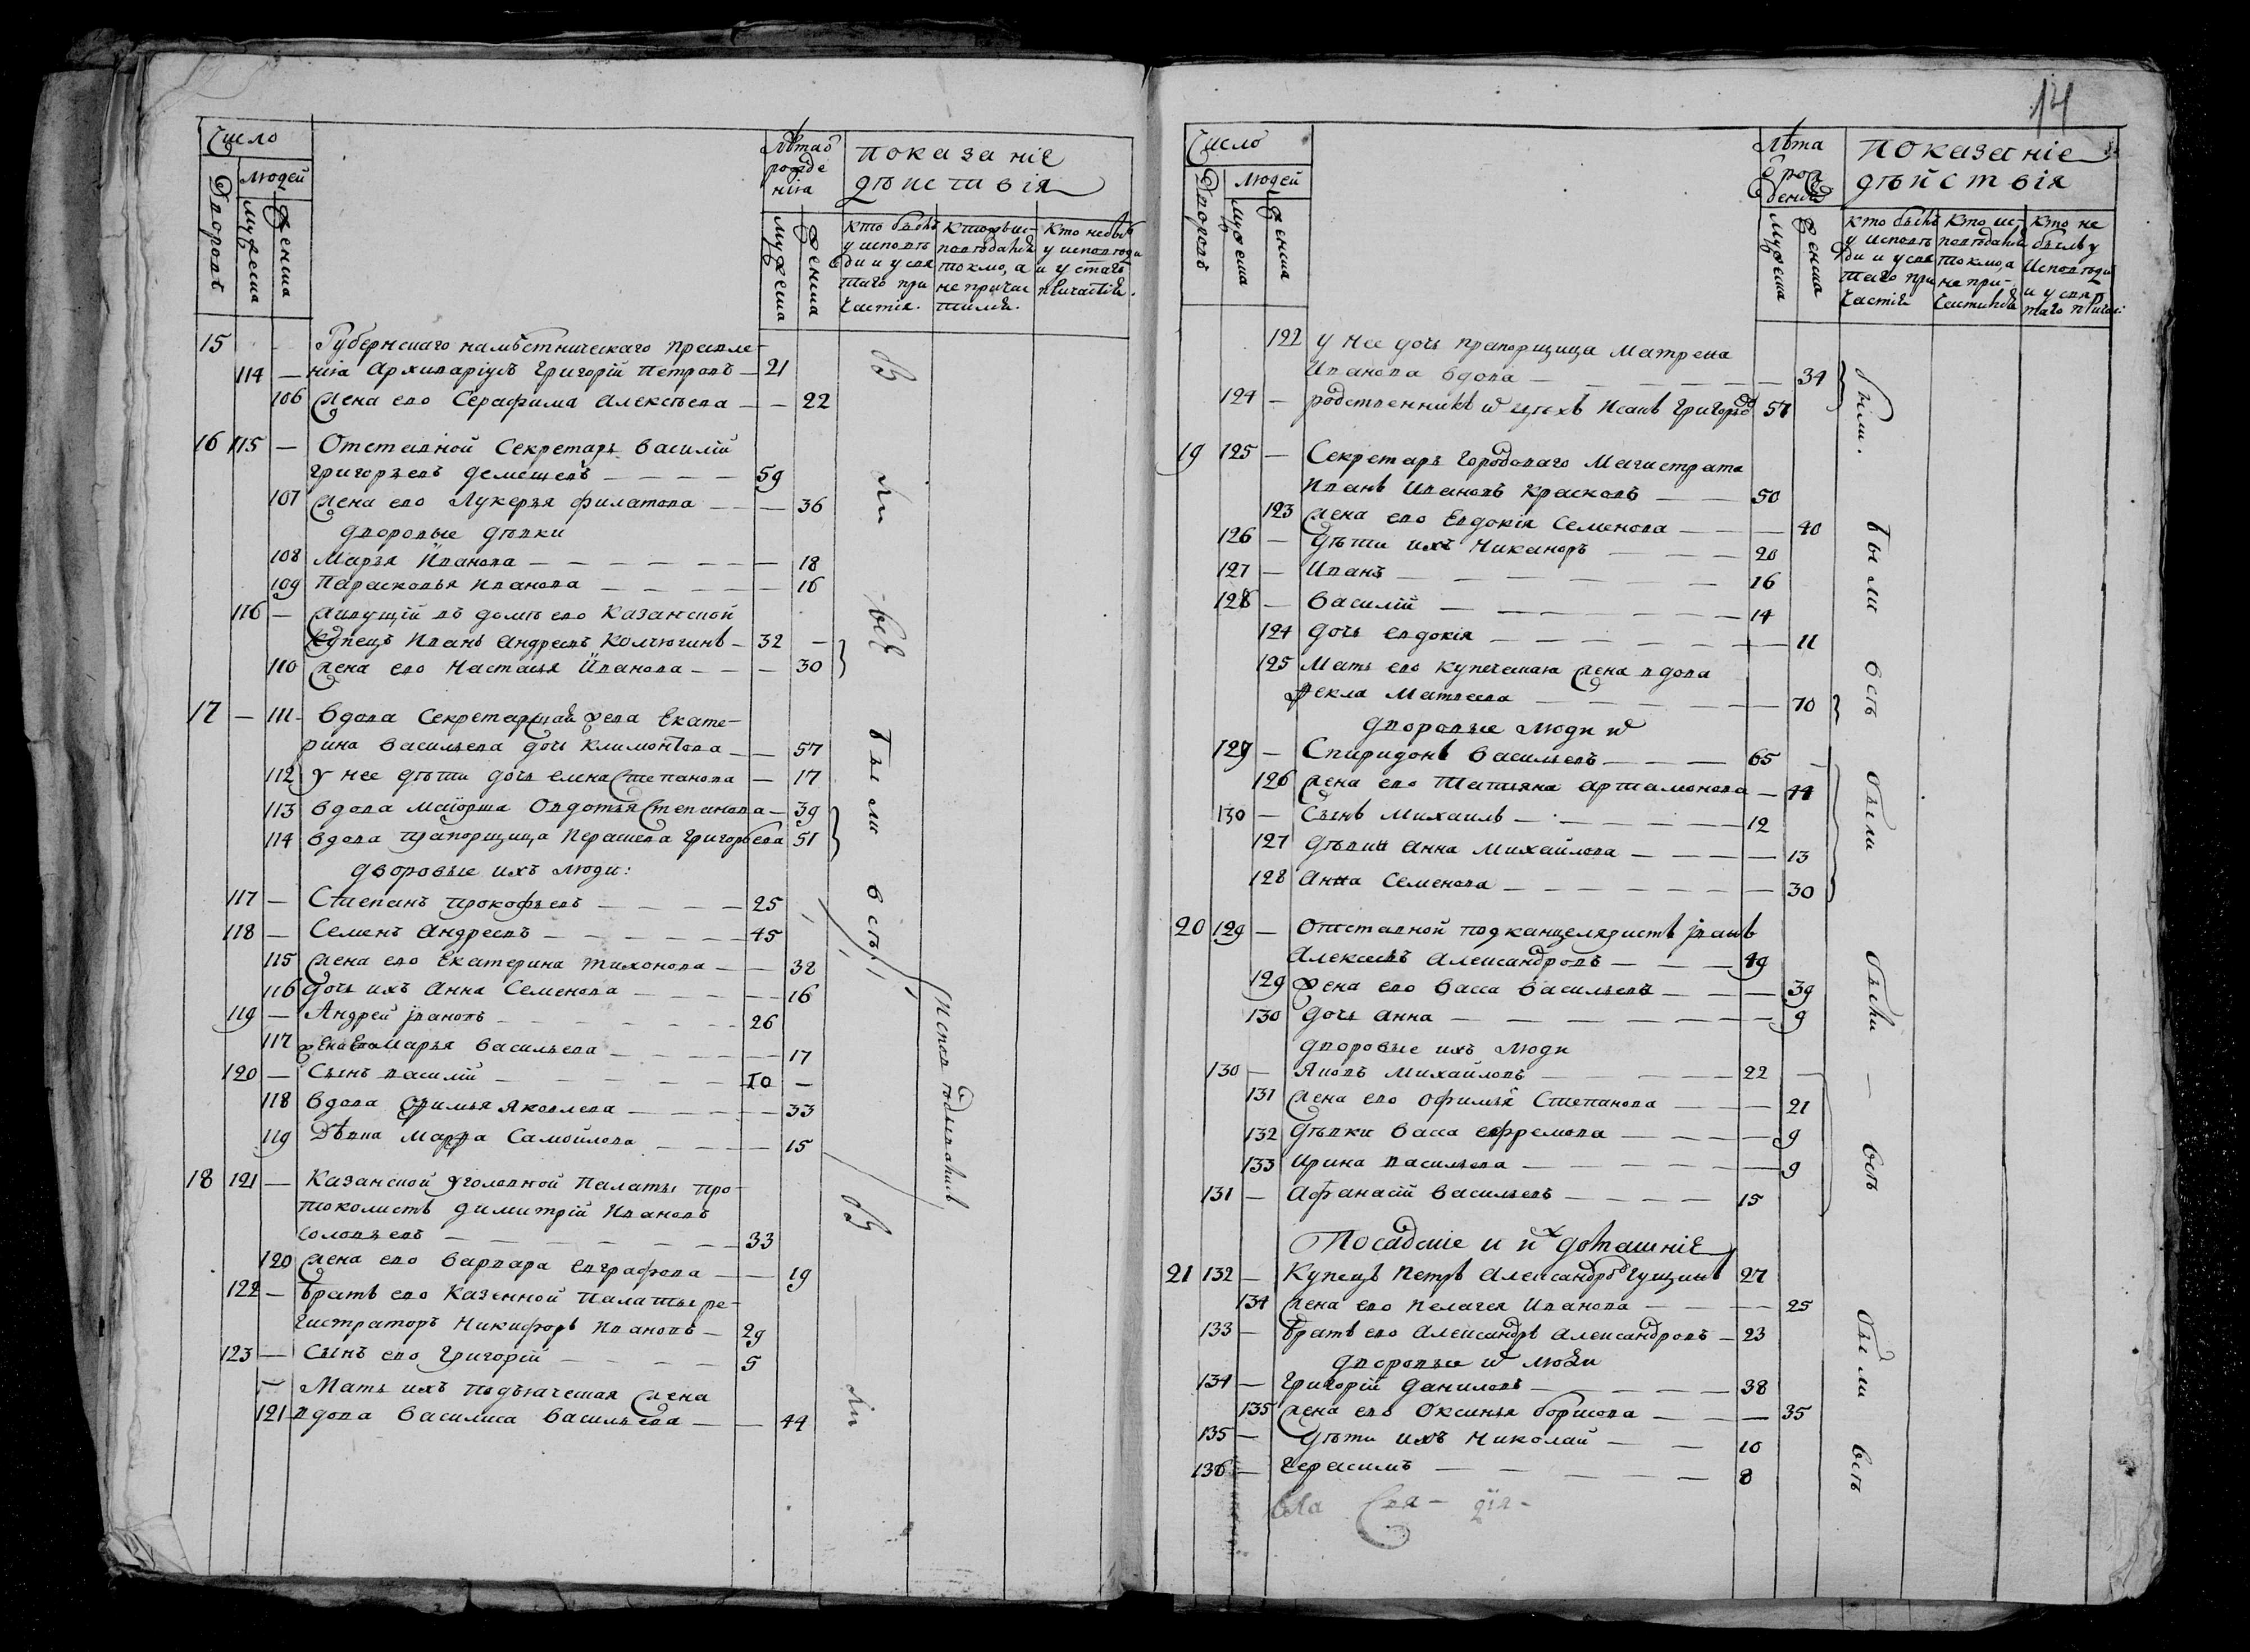 Число
людей
Дворовъ
Мужеска
Женска
Лѣта о
рожде
нія
Мужеска
Женска
показаніе
дѣиствія
кто былъ
у исповѣ
ди и у свя
таго при
частія.
Кто исповѣдался
токмо, а
не причас
тился.
Кто не былъ
у исповѣди
и у стаго
причастія.
15 Губернскаго намѣстническаго правле-
114 — нія Архиваріусъ Григорій Петровъ — 21
106 жена ево Серафима Алексѣева — — 22
16 115 — Отставной Секретарь Василій
Григорьевъ Демешевъ — — — — 59
107 жена ево Лукерья Филатова — — — 36
дворовые дѣвки
108 Марья Иванова — — — — — — 18
109 Парасковья Иванова — — — — — 16
116 — живущій въ домѣ ево Казанской
купецъ Иванъ Андреевъ Колчюгинъ — 32 —
110 жена ево Настасья Иванова — — — 30
17 — 111 — Вдова Секретарская жена Екате-
рина Васильева дочь Климонтова — — 57
112 у нее дѣти дочь Елена Степанова — 17
113 вдова маіорша Овдотья Степанова — 39
114 вдова прапорщица Григорьева 51
дворовые ихъ люди:
117 — Степанъ Прокофьевъ — — — — 25
118 — Семенъ Андреевъ — — — — — — 45
115 жена ево Екатерина Тихонова — — 32
116 дочь ихъ Анна Семенова — — — — — 16
119 — Андрей Івановъ — — — — — — — 26
117 жена ево Марья Васильева — — — — — 17
120 — Сынъ Василій — — — — — — 10 —
118 вдова Офимья Яковлева — — — — — 33
119 Дѣвка Марфа Самойлова — — — — — 15
18 121 — Казанской уголовной Палаты про-
токолистъ Димитрій Ивановъ
Соловьевъ — — — — — — — 33
120 жена ево Варвара Евграфова — — 19
122 — братъ ево Казенной Палаты ре-
гистраторъ Никифоръ Ивановъ — 29
123 — сынъ ево Григорій — — — — 5
— Мать ихъ подъяческая жена
121 вдова Василиса Васильева — — 44
Были
всѣ
Были всѣ
Исповѣдывались
14
Число
людей
Дворовъ
Мужеска
Женска
Лѣта
о рож
деніи
Мужеска
Женска
показаніе
дѣйствія
кто былъ
у исповѣ
ди и у свя
таго при
частія
Кто ис-
повѣдался
токмо, а
не при-
частился
Кто не
былъ у
Исповѣди
и у свя
таго причас:
122 у нее дочь прапорщица Матрена
Иванова вдова — — — — — — — 34
124 — родственникъ Исакъ Григорьевъ 57
19 125 — Секретарь городоваго Магистрата
Иванъ Ивановъ Красковъ — — 50
123 жена ево Евдокія Семенова — — — 40
126 — дѣти ихъ Никаноръ — — — 20
127 — Иванъ — — — — — — — 16
128 — Василій — — — — — — 14
124 дочь Евдокія — — — — — — 11
125 Мать ево купеческая жена вдова
Фекла Матвеева — — — — — — 70
дворовые люди
129 — Спиридонъ Васильевъ — — — 65
126 жена ево Татьяна Артамонова — 44
130 — Сынъ Михаилъ — — — — — — 12
127 дѣвки Анна Михайлова — — — — 13
128 Анна Семенова — — — — — — — 30
20 129 — Отставной подканцеляристъ Іванъ
Алексѣевъ Александровъ — — — 49
129 жена ево Васса Васильевъ — — — 39
130 дочь Анна — — — — — — — — 9
дворовые ихъ люди
130 — Яковъ Михайловъ — — — — — 22
131 жена ево Офимья Степанова — — — 21
132 дѣвки Васса Ефремова — — — — 9
133 Ирина Васильева — — — — — — 9
131 — Афанасій Васильевъ — — — — 15
Посадскіе и ихъ домашніе
21 132 — Купецъ Петръ Александровъ Гущинъ 27
134 жена ево Пелагея Иванова — — — — 25
133 — братъ ево Александръ Александровъ — 23
дворовые люди
134 — Григорій Даниловъ — — — — — 38
135 жена ево Оксинья Борисова — — — 35
135 — дѣти ихъ Николай — — 10
136 — Герасимъ — — — — — — 8
были.
Были всѣ
были
были всѣ
были всѣ